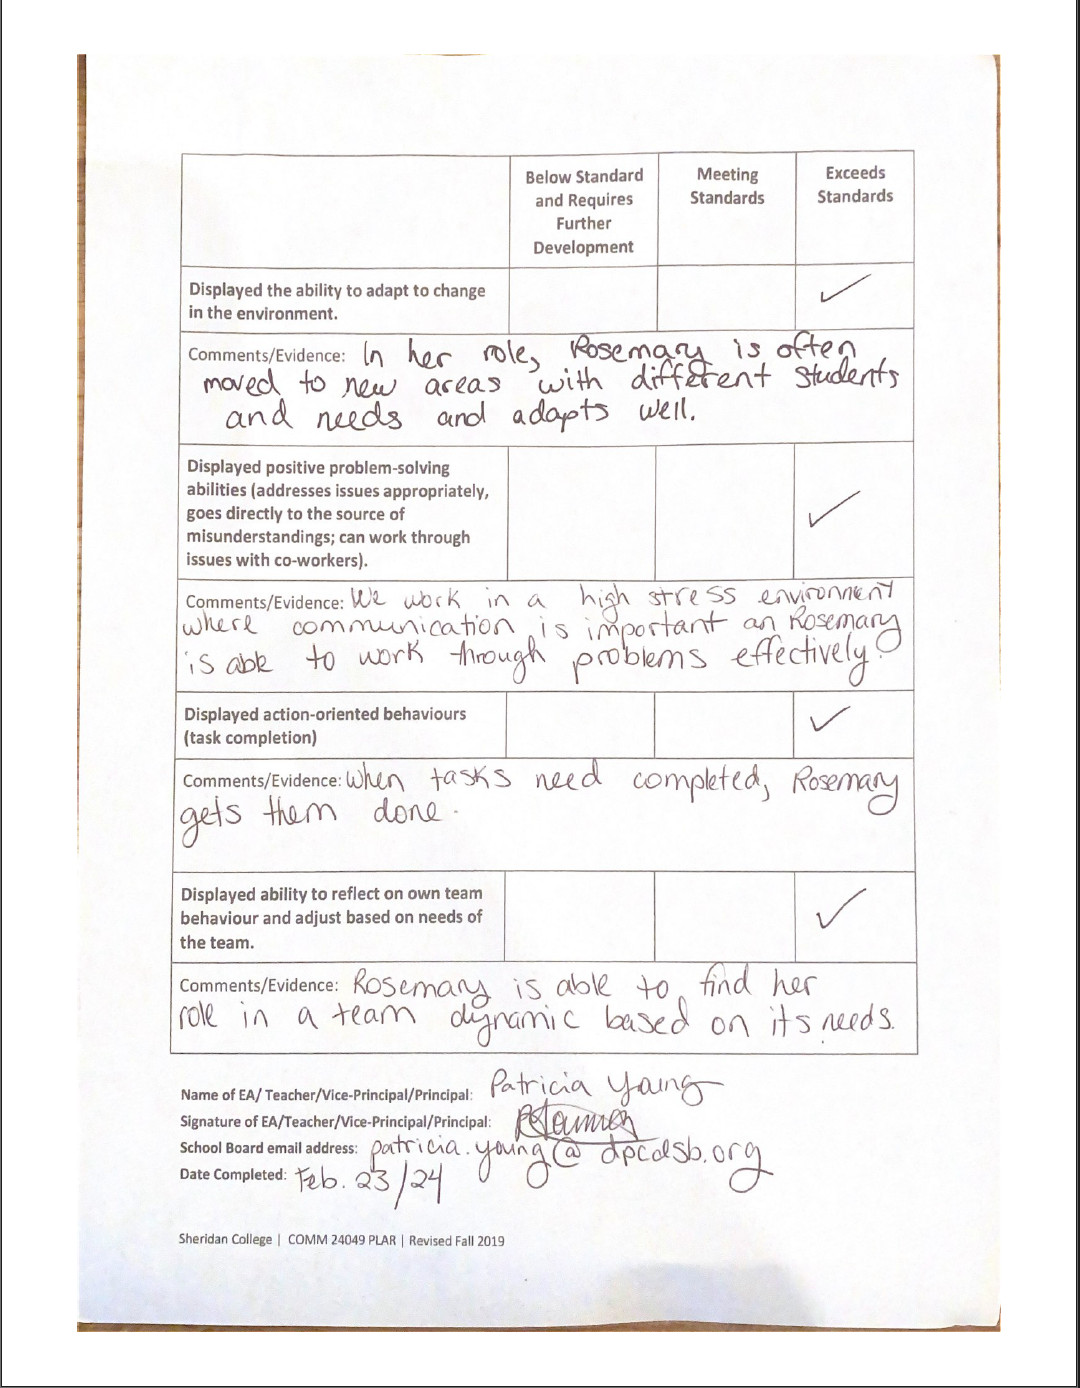 Below Standard
and Requires
Further
Development
Meeting
Standards
Exceeds
Standards
Displayed the ability to adapt to change
in the environment.
Comments/Evidence: In her role, Rosemary is often
moved to new areas with different students
and needs and adapts well.
Displayed positive problem-solving
abilities (addresses issues appropriately,
goes directly to the source of
misunderstandings; can work through
issues with co-workers).
Comments/Evidence: We work in a high stress environment
where communication is important an Rosemary
is able to work through problems effectively.
Displayed action-oriented behaviours
(task completion)
Comments/Evidence: When tasks need completed, Rosemary
gets them done.
Displayed ability to reflect on own team
behaviour and adjust based on needs of
the team.
Comments/Evidence: Rosemary is able to find her
role in a team dynamic based on its needs.
Name of EA/ Teacher/Vice-Principal/Principal: Patricia Young
Signature of EA/Teacher/Vice-Principal/Principal:
School Board email address: patricia.young@dpcdsb.org
Date Completed: Feb. 23/24
Sheridan College | COMM 24049 PLAR | Revised Fall 2019